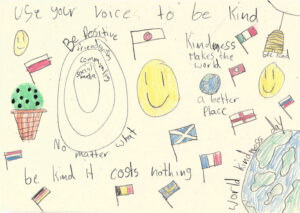 Use your voice to be Kind
Be Positive
friendships
community
social
media
No matter what
Kindness
Makes the
World
a better
Place
be kind
be kind it costs nothing
World kindness